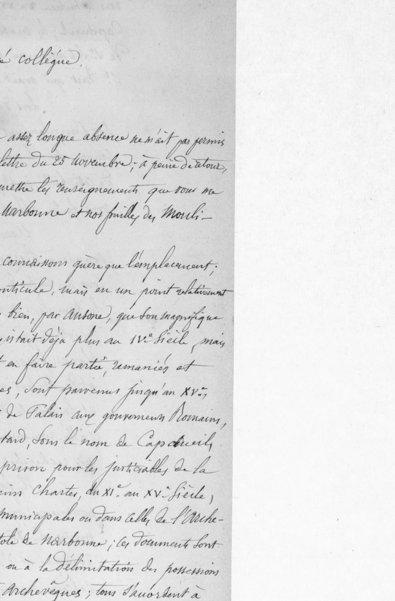 é collègue.
assez longue absence ne m'ait pas permis
lettre du 25 novembre; à peine de retour,
mettre les renseignements que vous me
Narbonne et nos fouilles des Mouli-
connaissons guère que l'emplacement.
onticule, mais en un point relativement
bien, par Ausone, que son magnifique
existait déjà plus au IVe Siècle, mais
en faire partie, remaniés et
es, sont parvenus jusqu'au XVe
de Palais aux gouverneurs Romains,
tard, sous le nom de Capdueil,
prison pour les justiciables de la
Chartes, du XIe au XVe Siècle,
municipales ou dans celles de l'Arche-
tole de Narbonne; ces documents sont
ou à la délimitation des possessions
Archevêques; tous s'accordent à